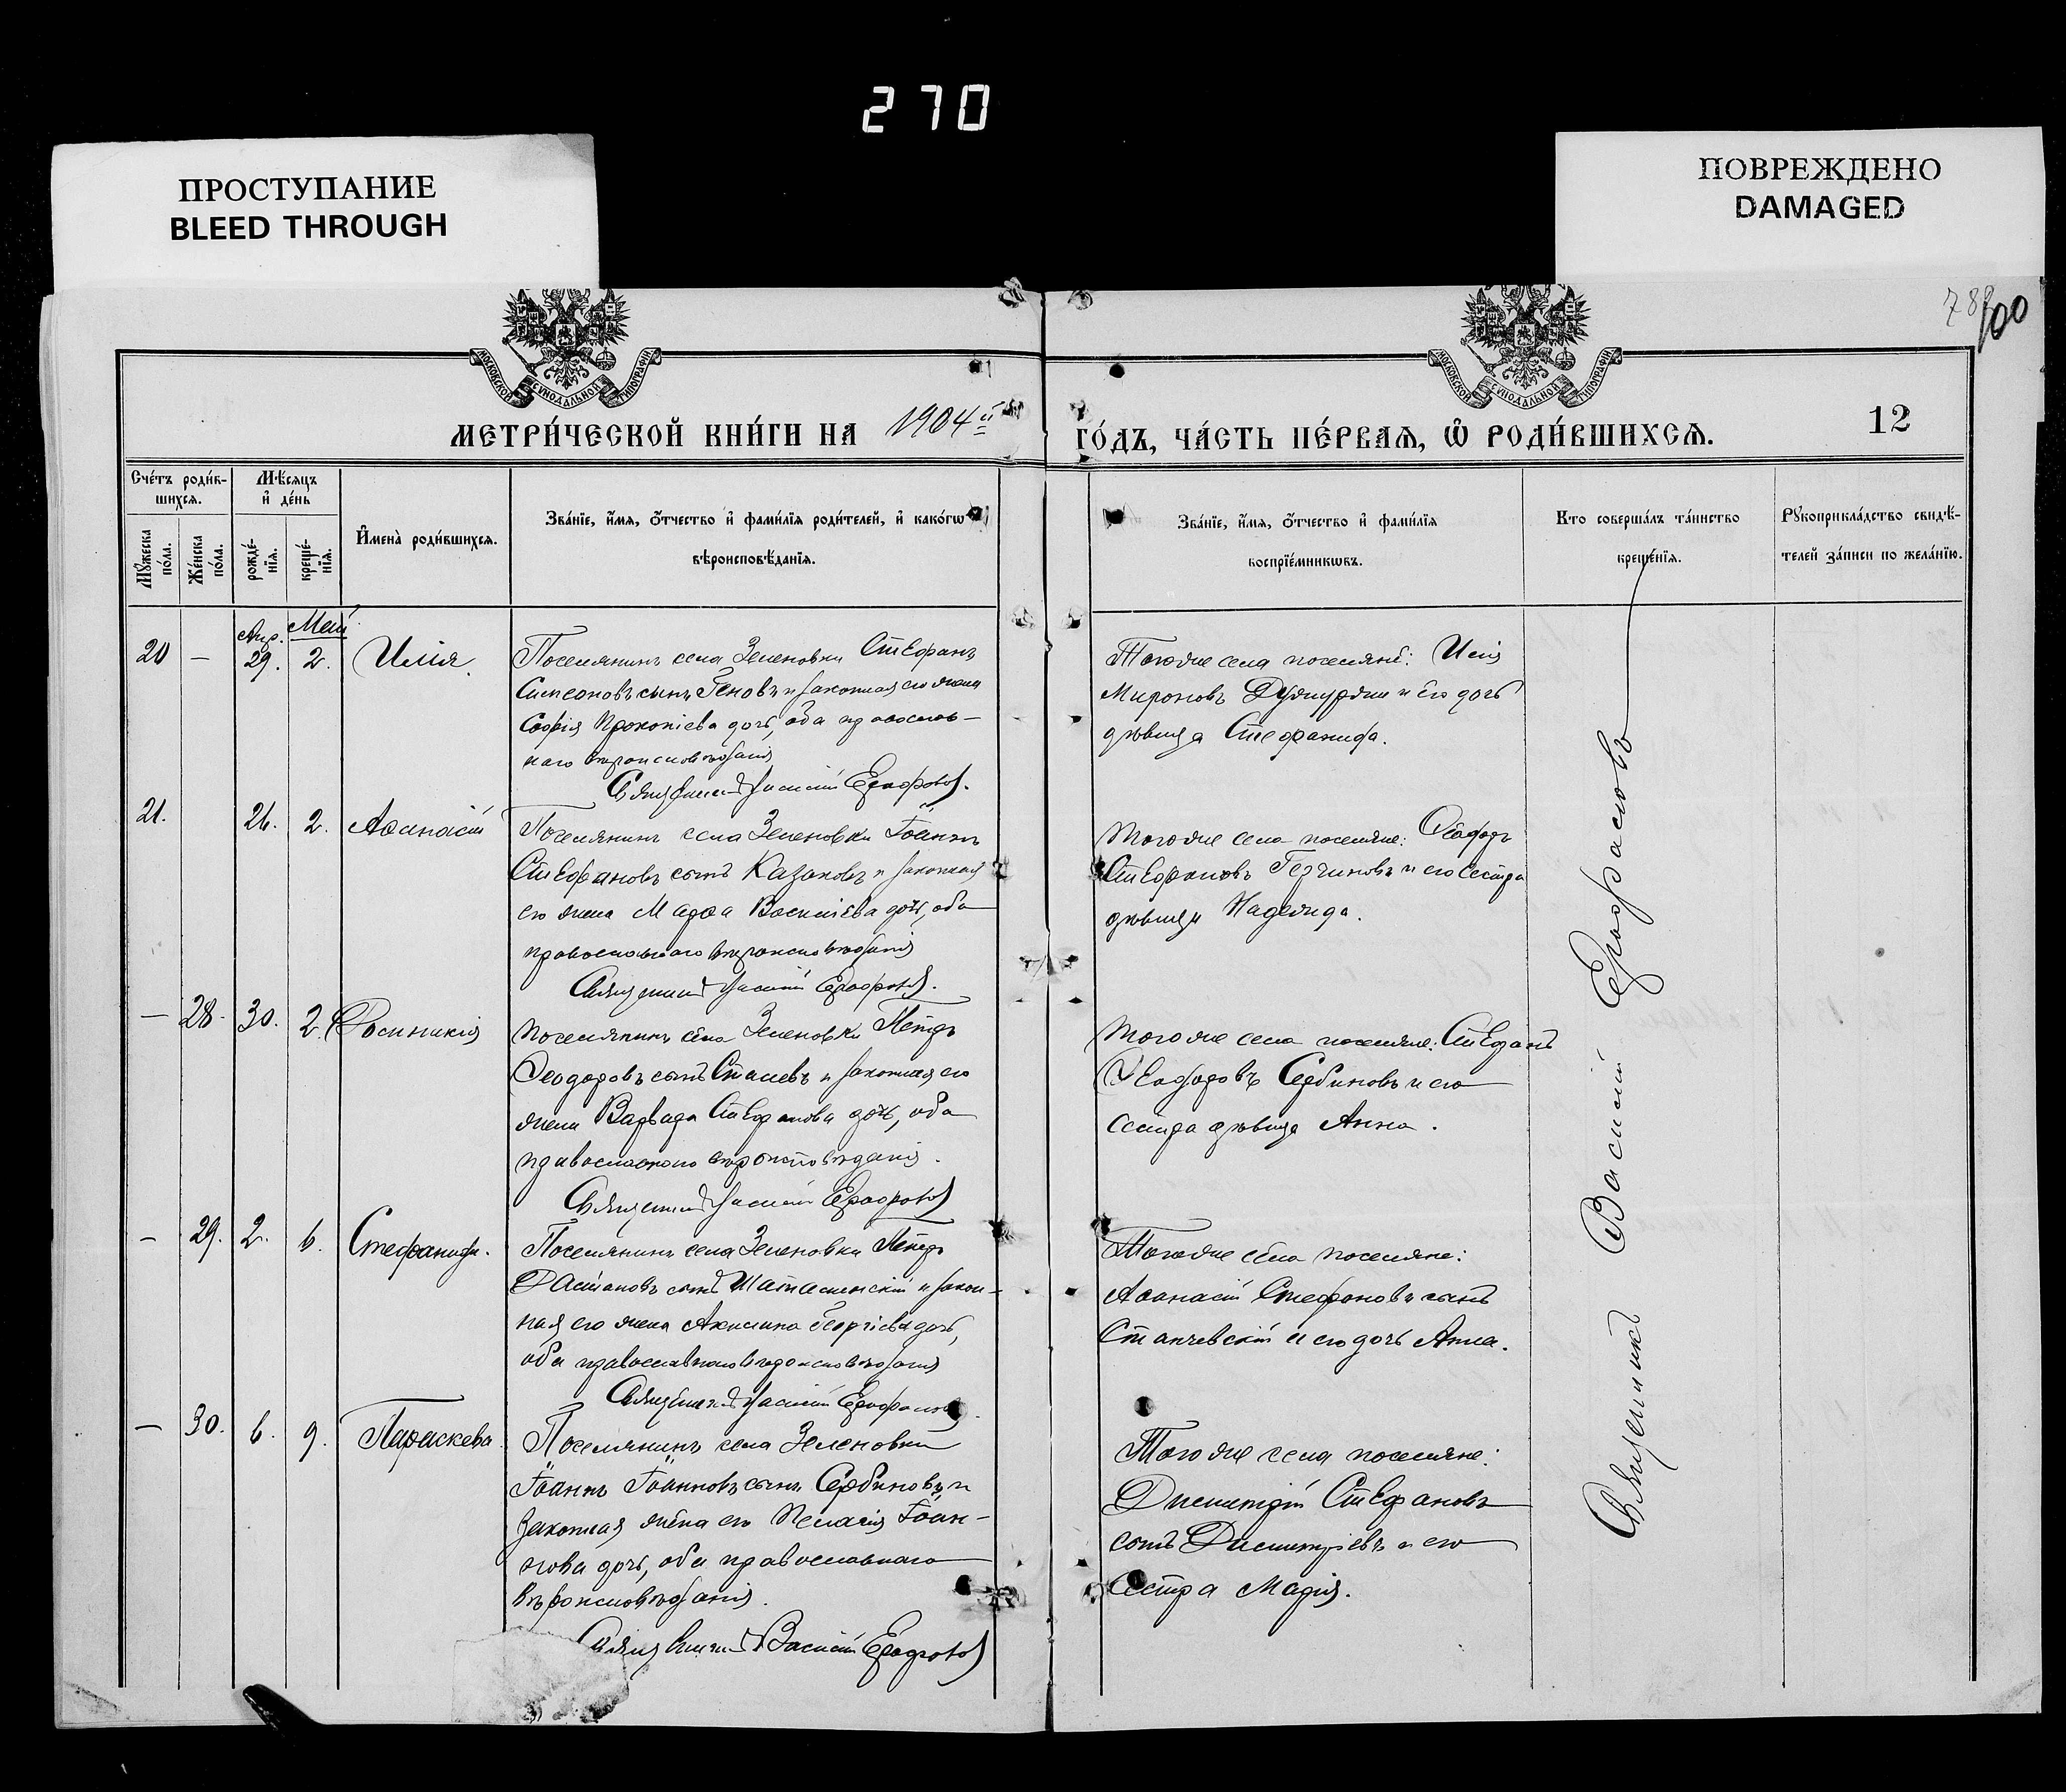 270
ПРОСТУПАНИЕ
BLEED THROUGH
ПОВРЕЖДЕНО
DAMAGED
789
100
МОСКОВСКОЙ СѴНОДАЛЬНОЙ ТИПОГРАФІИ
МОСКОВСКОЙ СѴНОДАЛЬНОЙ ТИПОГРАФІИ
МЕТРИ́ЧЕСКОЙ КНИ́ГИ НА 1904й ГО́ДЪ, ЧА́СТЬ ПЕ́РВАѦ, Ѡ҆ РОДИ́ВШИХСѦ.
12
Сче́тъ роди́в-
шихсѧ.
Мѣ́сяцъ
и҆ де́нь
Мꙋ́жеска по́ла.
Же́нска по́ла.
рожде́-нїѧ.
креще́-нїѧ.
И҆мена̀ роди́вшихсѧ.
Зва́нїе, и҆́мѧ, ѻ҆́тчество и҆ фами́лїѧ роди́телей, и҆ како́гѡ
вѣроисповѣ́данїѧ.
Зва́нїе, и҆́мѧ, ѻ҆́тчество и҆ фами́лїѧ
воспрїе́мникѡвъ.
Кто соверша́лъ та́инство
креще́нїѧ.
Рꙋкоприкла́дство свидѣ́-
телей за́писи по жела́нїю.
Апр. Май
20 — 29. 2. Илія.
Поселянинъ села Зеленовки Стефанъ
Симеоновъ сынъ Геновъ и законная его жена
Софія Прокопіева дочь, оба православ-
наго вѣроисповѣданія
Священникъ Василій Ерофасовъ.
Тогоже села поселяне: Илія
Мироновъ и его дочь
дѣвица Стефанида.
21. 26. 2. Аѳанасій
Поселянинъ села Зеленовки Іоаннъ
Стефановъ сынъ Казаковъ и законная
его жена Марѳа Василіева дочь, оба
православнаго вѣроисповѣданія
Священникъ Василій Ерофасовъ.
Тогоже села поселяне: Ѳеодоръ
Стефановъ и его сестра
дѣвица Надежда.
— 28. 30. 2.
Поселянинъ села Зеленовки Петръ
Ѳеодоровъ сынъ и законная его
жена Варвара Стефанова дочь, оба
православнаго вѣроисповѣданія.
Священникъ Василій Ерофасовъ
Тогоже села поселяне: Стефанъ
Ѳеодоровъ Сербиновъ и его
сестра дѣвица Анна.
— 29. 2. 6. Стефанида.
Поселянинъ села Зеленовки Петръ
сынъ и закон-
ная его жена Акилина Георгіева дочь,
оба православнаго вѣроисповѣданія
Священникъ Василій Ерофасовъ.
Тогоже села поселяне:
Аѳанасій Стефановъ сынъ
Станчевскій и его дочь Анна.
— 30. 6. 9. Параскева.
Поселянинъ села Зеленовки
Іоаннъ Іоанновъ сынъ Сербиновъ, и
законная жена его Пелагія Іоан-
нова дочь, оба православнаго
вѣроисповѣданія.
Священникъ Василій Ерофасовъ
Тогоже села поселяне:
Димитрій Стефановъ
сынъ Димитріевъ и его
сестра Марія.
Священникъ Василій Ерофасовъ